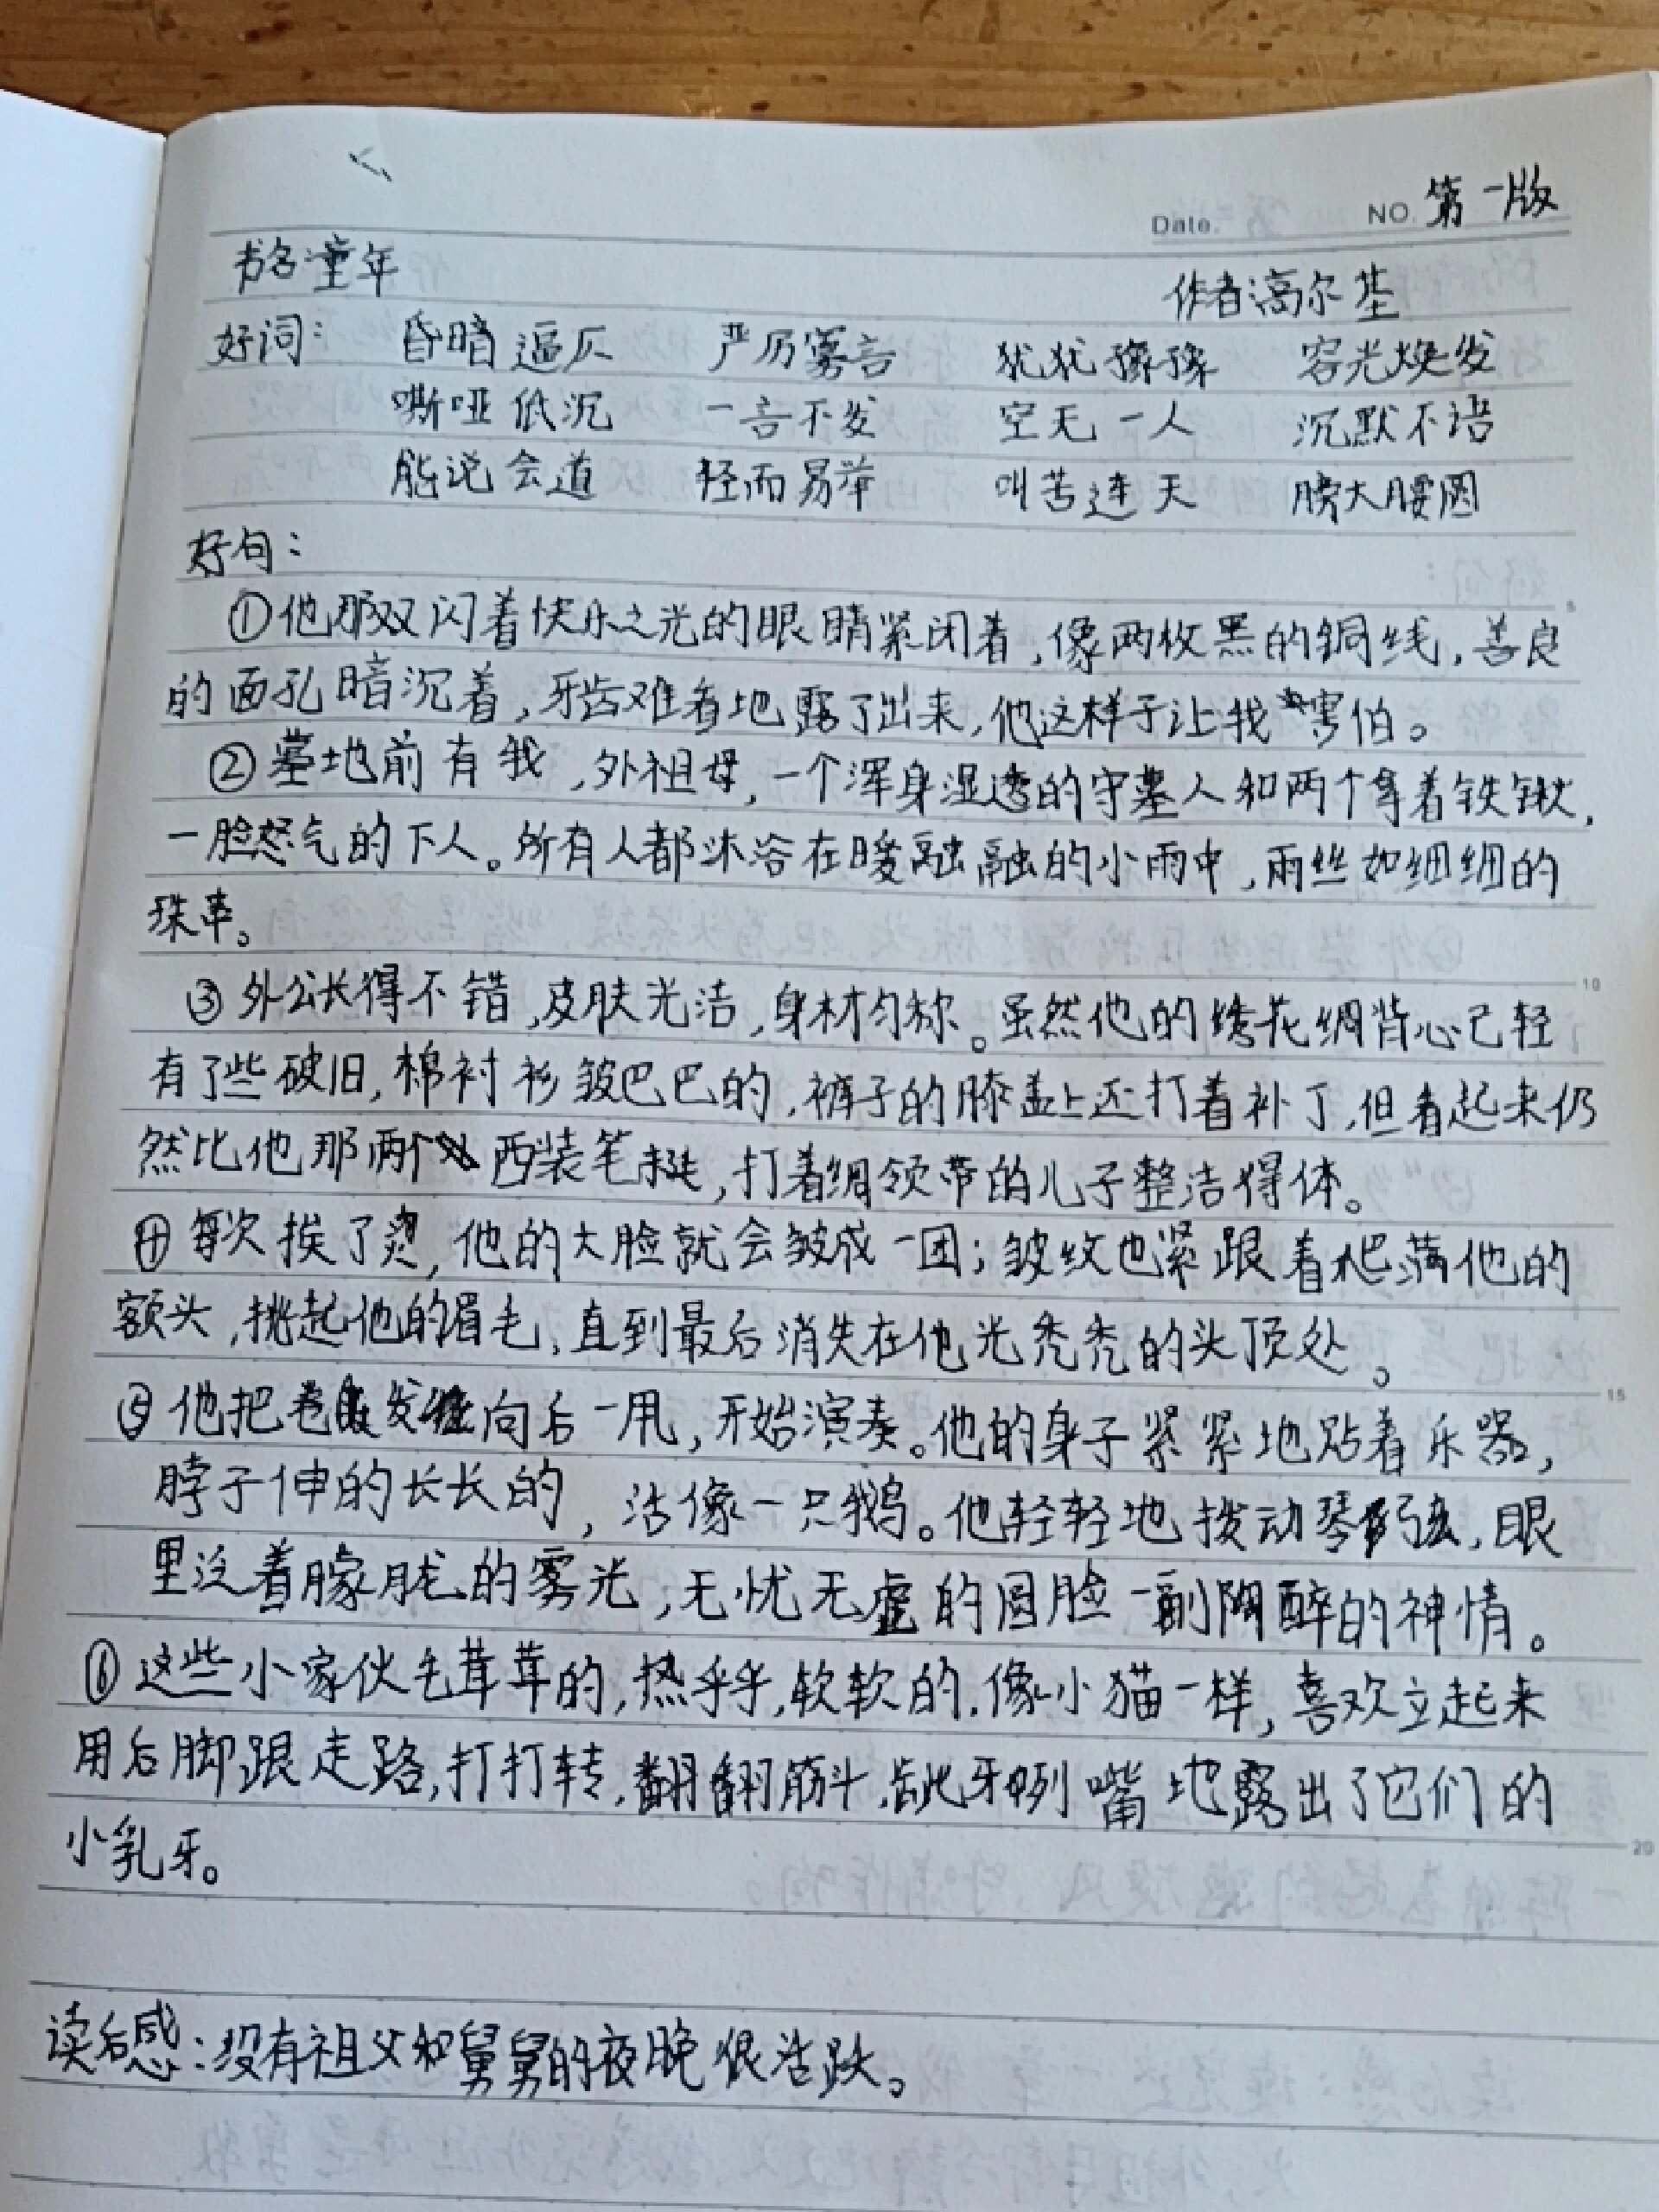 Date. NO. 第一版
书名:童年 作者:高尔基
好词: 昏暗逼仄 严厉寡言 犹犹豫豫 容光焕发
嘶哑低沉 一言不发 空无一人 沉默不语
能说会道 轻而易举 叫苦连天 膀大腰圆
好句:
①他那双闪着快乐之光的眼睛紧闭着,像两枚黑的铜钱,善良
的面孔暗沉着,牙齿难看地露了出来,他这样子让我害怕。
②墓地前有我,外祖母,一个浑身湿透的守墓人和两个拿着铁锹,
一脸怒气的下人。所有人都沐浴在暖融融的小雨中,雨丝如细细的
珠串。
③外公长得不错,皮肤光洁,身材匀称。虽然他的绣花绸背心已轻
有了些破旧,棉衬衫皱巴巴的,裤子的膝盖上还打着补丁,但看起来仍
然比他那两个西装笔挺,打着绸领带的儿子整洁得体。
④每次挨了烫,他的大脸就会皱成一团;皱纹也紧跟着爬满他的
额头,挑起他的眉毛,直到最后消失在他光秃秃的头顶处。
⑤他把卷发向后一甩,开始演奏。他的身子紧紧地贴着乐器,
脖子伸的长长的,活像一只鹅。他轻轻地拨动琴弦,眼
里泛着朦胧的雾光,无忧无虑的圆脸一副陶醉的神情。
⑥这些小家伙毛茸茸的,热乎乎,软软的.像小猫一样,喜欢立起来
用后脚跟走路,打打转,翻翻筋斗,龇牙咧嘴地露出了它们的
小乳牙。
读后感:没有祖父和舅舅的夜晚很活跃。
5
10
15
20